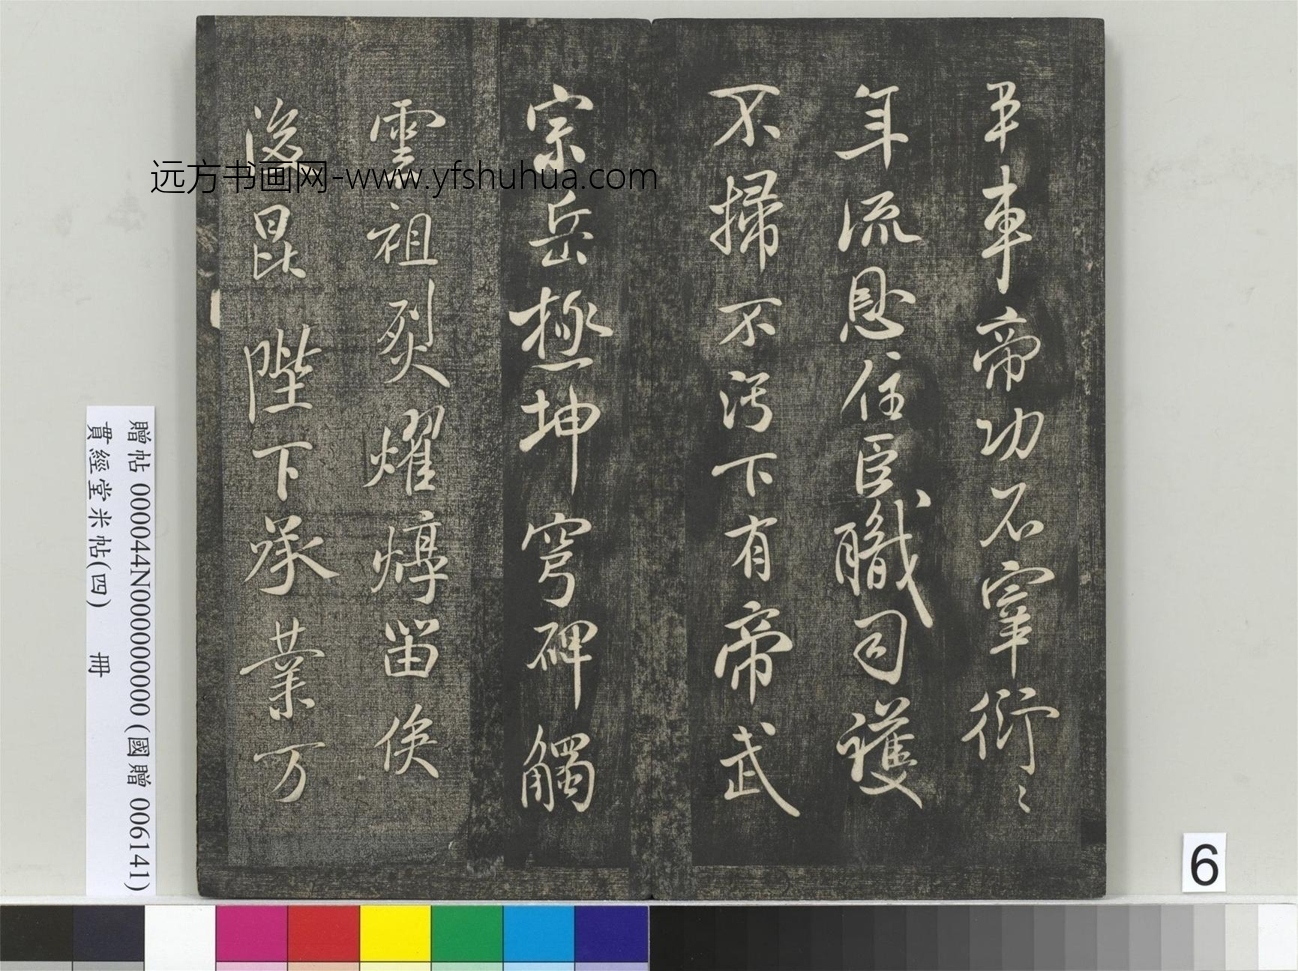 平車帝功不宰衍〻
年流恩住臣職司護
不掃不污下有帝武
宗岳極坤穹碑觸
雲祖烈燿焞留侯
後昆陛下承業万
远方书画网-www.yfshuhua.com
贈帖 000044N000000000 (國贈 006141)
貫經堂米帖(四) 冊
6